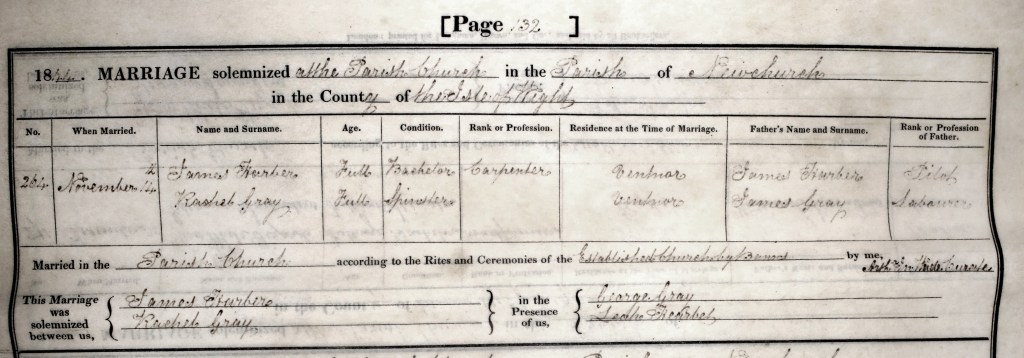 [Page 132 ]
1844. MARRIAGE solemnized at the Parish Church in the Parish of Newchurch
in the County of the Isle of Wight
No. When Married. Name and Surname. Age. Condition. Rank or Profession. Residence at the Time of Marriage. Father's Name and Surname. Rank or Profession of Father.
264 November 14th James Hurber Full Bachelor Carpenter Ventnor James Hurber Pilot
Rachel Gray Full Spinster Ventnor James Gray Labourer
Married in the Parish Church according to the Rites and Ceremonies of the Established Church by Banns by me, Curate
This Marriage was solemnized between us, James Hurber in the Presence of us, George Gray
Rachel Gray Leah